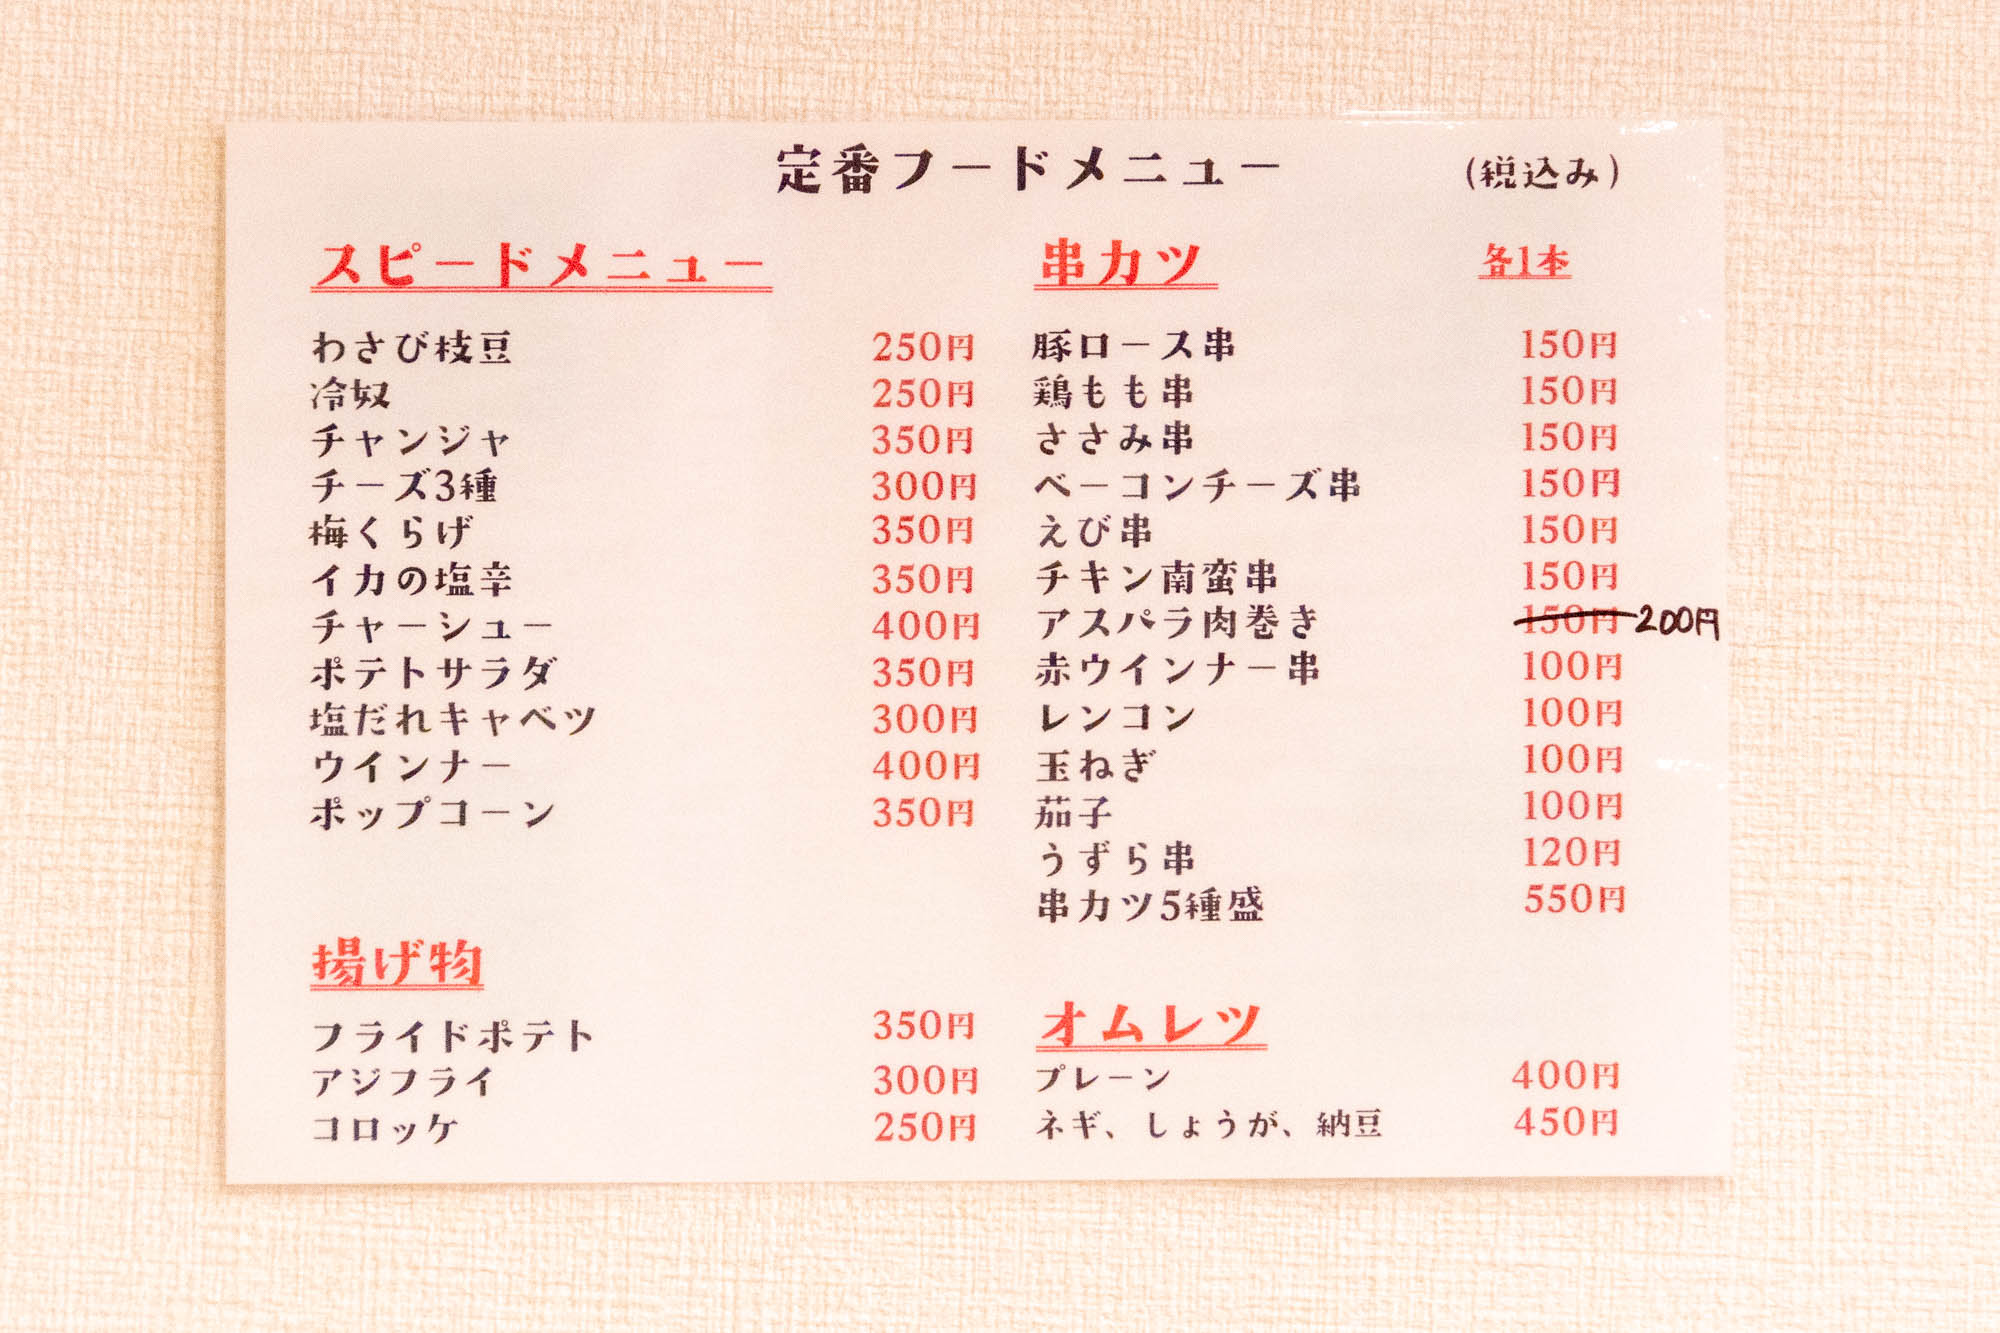 定番フードメニュー (税込み)
スピードメニュー
わさび枝豆 250円
冷奴 250円
チャンジャ 350円
チーズ3種 300円
梅くらげ 350円
イカの塩辛 350円
チャーシュー 400円
ポテトサラダ 350円
塩だれキャベツ 300円
ウインナー 400円
ポップコーン 350円
揚げ物
フライドポテト 350円
アジフライ 300円
コロッケ 250円
串カツ 各1本
豚ロース串 150円
鶏もも串 150円
ささみ串 150円
ベーコンチーズ串 150円
えび串 150円
チキン南蛮串 150円
アスパラ肉巻き 150円 200円
赤ウインナー串 100円
レンコン 100円
玉ねぎ 100円
茄子 100円
うずら串 120円
串カツ5種盛 550円
オムレツ
プレーン 400円
ネギ、しょうが、納豆 450円